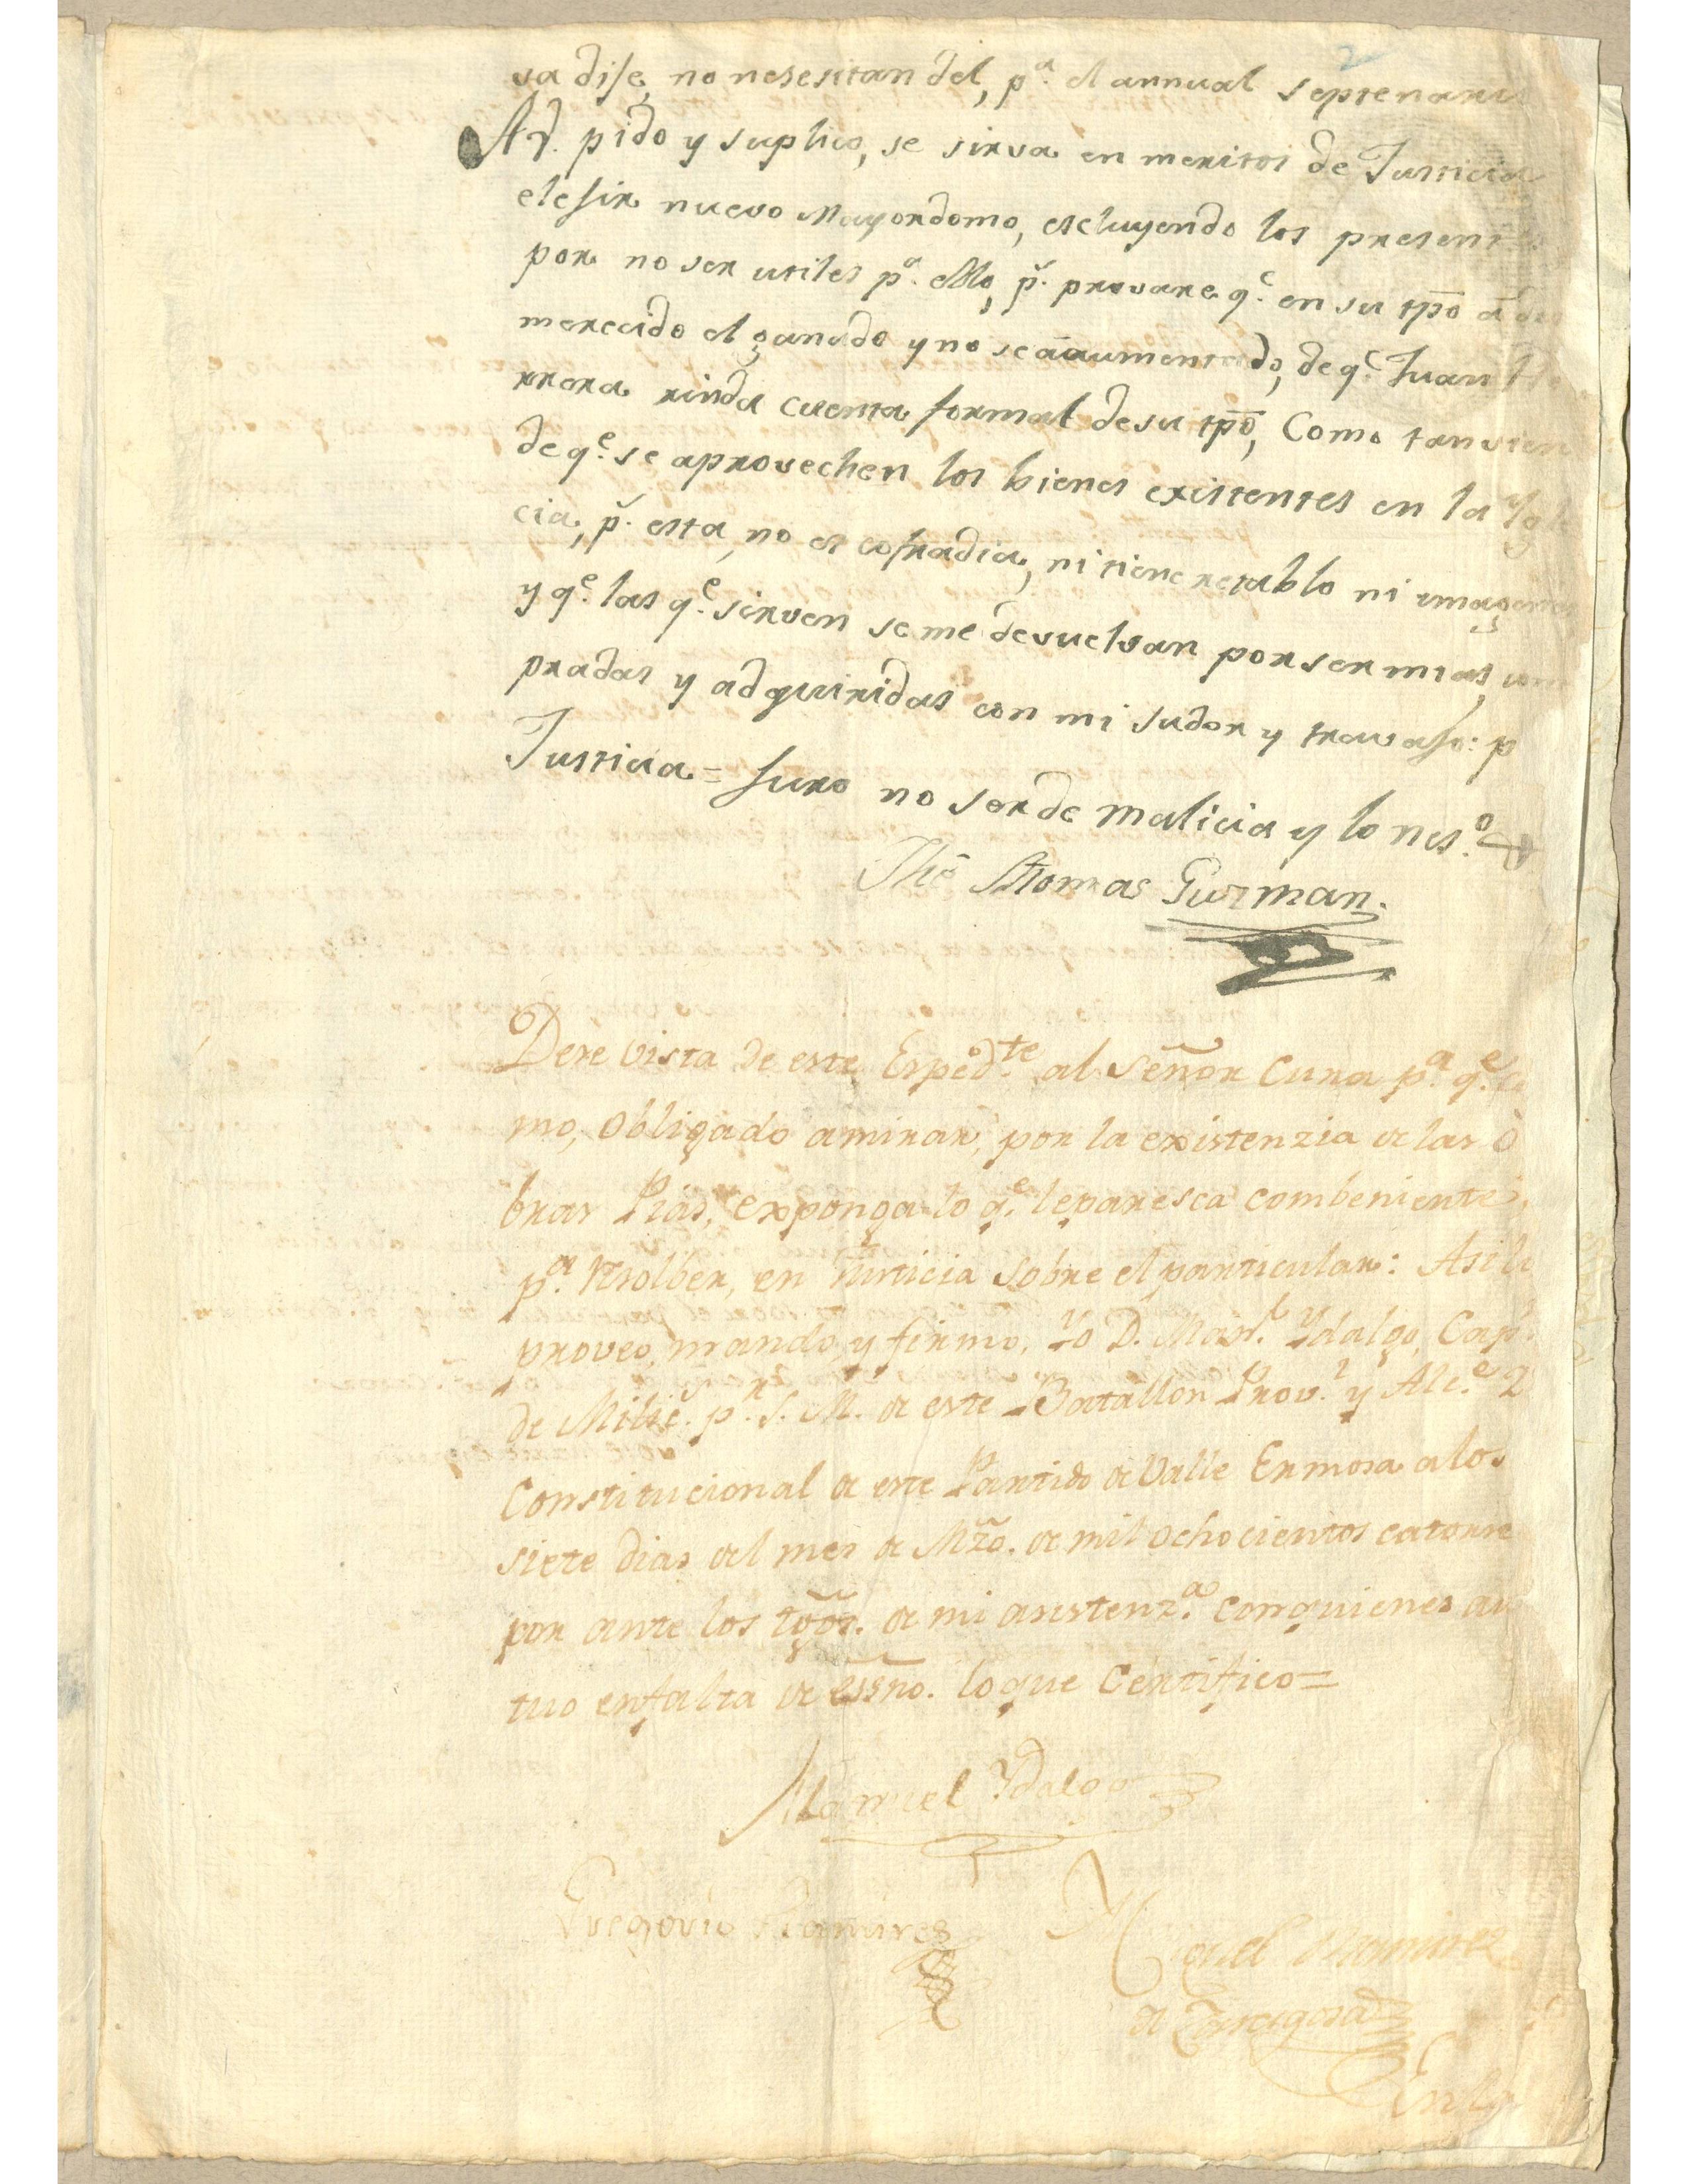 2
va dise, no nesesitan del, p.ª el annual septenari
A V. pido y suplico, se sirva en meritos de Justicia
elesir nuevo Mayordomo, escluyendo los present
por no ser utiles p.ª ello, p.r provare q.e en su tpō á des
merecido el ganado y no se á aumentado, de q.e Juan He
rrera rinda cuenta formal de su tpō, Como tanvien
de q.e se aprovechen los bienes existentes en la Ygle
cia, p.r esta, no es cofradia, ni tiene retablo ni imagenes
y q.e las q.e sirven se me devuelvan por ser mias, com
pradas y adquiridas con mi sudor y travaso: p
Justicia = Juro no ser de malicia y lo nes.o
Thomas Guzman.
Dese vista de este Exped.te al Señor Cura p.ª q.e co
mo, obligado a mirar, por la existenzia de las O
bras Pias, exponga lo q.e le paresca combeniente,
p.ª resolber, en Justicia sobre el particular: Asi lo
proveo, mando, y firmo, Yo D. Man.l Ydalgo, Cap.n
de Milic.s p.r S. M. de este Batallon Prov.l y Alc.e 2
Constitucional de este Partido de Valle Ermosa a los
siete dias del mes de Mzo. de mil ochocientos catorse
por ante los tgōs. de mi asistenz.a con quienes ac
tuo en falta de essno. lo que Certifico=
Manuel Ydalgo
Gregorio Ramires
Miguel Ramirez
de Zaragosa